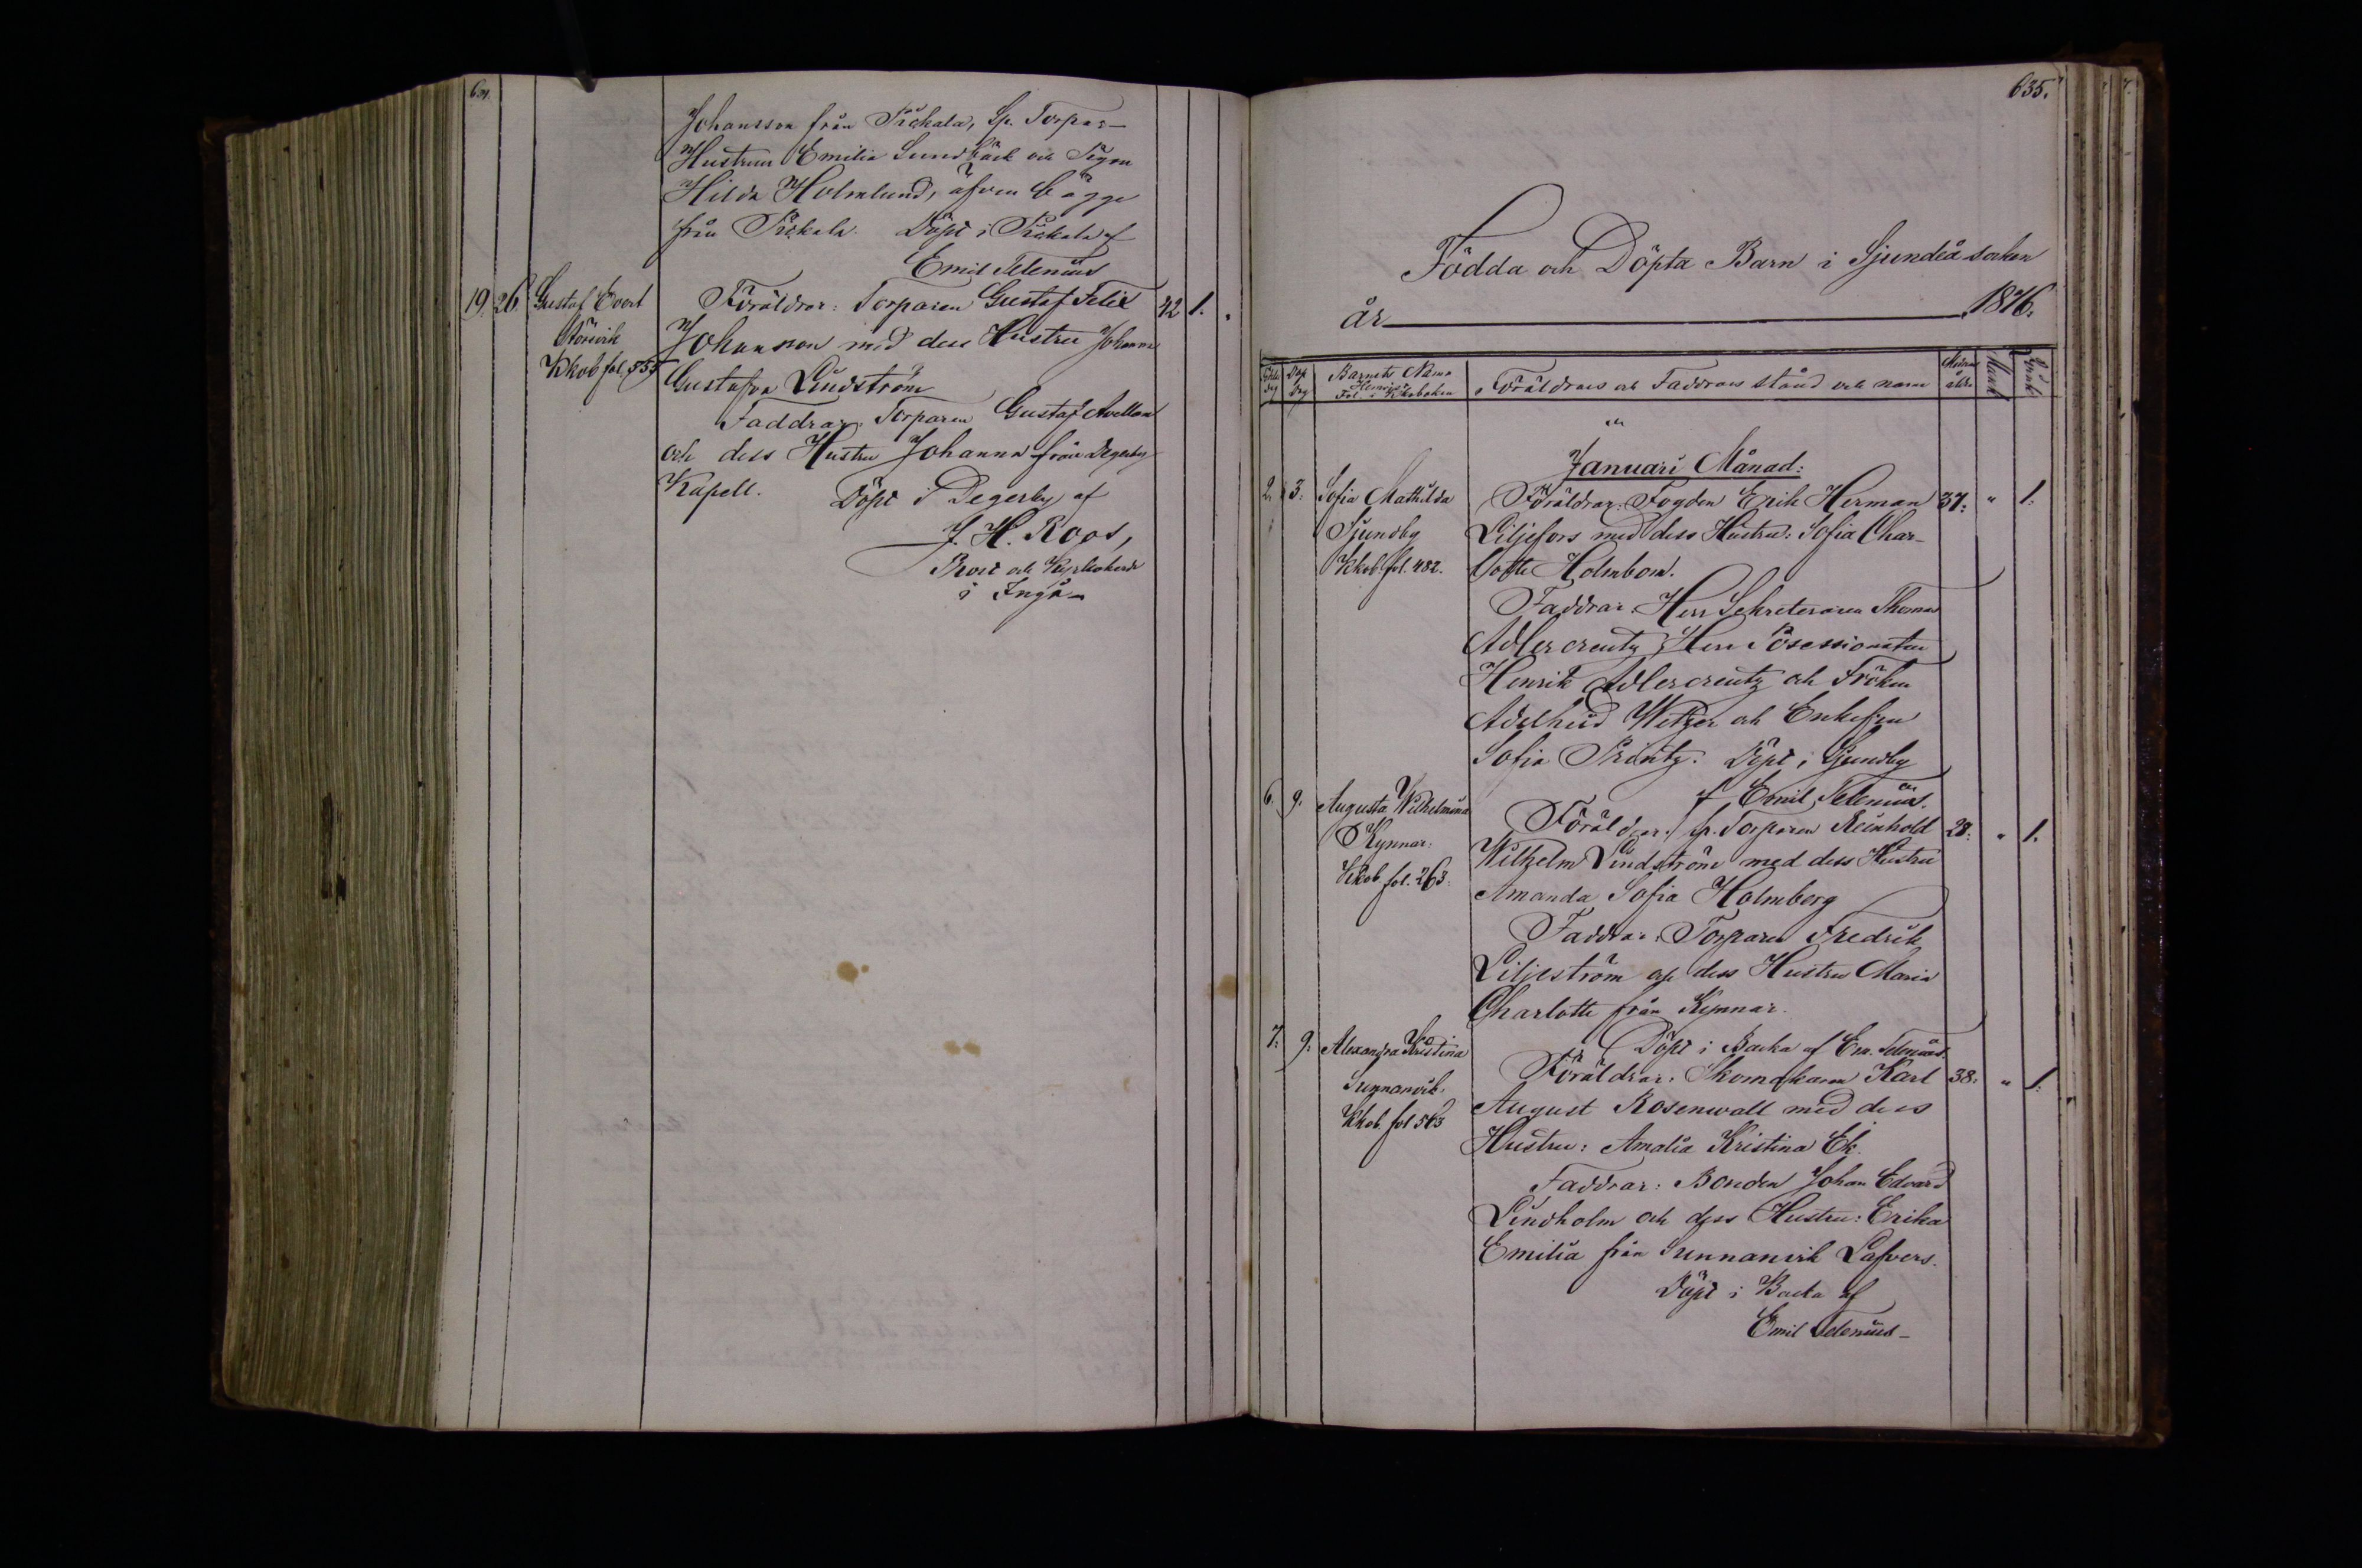 634.
Johansson från Pickala, Sp. Torpar-
Hustrun Emilia Sundbäck och Pigan
Hilda Holmlund, äfven bägge
från Pickala. Döpt i Pickala af
Emil Telenius
19. 26. Gustaf Evert Föräldrar: Torparen Gustaf Felix 42 1. "
Störsvik Johansson med dess Hustru Johanna
Kkob fol. 555 Gustafva Lindström
Faddrar: Torparen Gustaf Avellan
och dess Hustru Johanna från Degerby
Kapell. Döpt i Degerby af
J. H. Roos,
Prost och Kyrkoherde
i Ingå-
635.
Födda och Döpta Barn i Sjundeå socken
år 1876.
Födelse dag Döp dag Barnets Namn Hemvist Fol. i Kkoboken Föräldrars och Faddrars stånd och namn Modrens ålder Mank. Qvink.
Januari Månad:
2. 3. Sofia Mathilda Föräldrar: Fogden Erik Herman 37. " 1.
Sjundby Liljefors med dess Hustru: Sofia Char-
Kkob. fol. 482. lotte Holmbom.
Faddrar: Herr Sekreteraren Thomas
Adlercreutz, Herr Possessionaten
Henrik Adlercreutz och Fröken
Adelheid Wetzer och Enkefru
Sofia Printz. Döpt i Sjundby
af Emil Telenius.
6. 9. Augusta Wilhelmina Föräldrar: Sp. Torparen Reinhold 28. " 1.
Kynnar. Wilhelm Lindström med dess Hustru
Kkob. fol. 263. Amanda Sofia Holmberg
Faddrar: Torparen Fredrik
Liljeström och dess Hustru Maria
Charlotte från Kynnar.
Döpt i Backa af Em. Telenius.
7. 9. Alexandra Kristina Föräldrar: Skomakaren Karl 38. " 1.
Sunnanvik. August Rosenwall med dess
Kkob. fol 563 Hustru: Amalia Kristina Ek.
Faddrar: Bonden Johan Edvard
Lindholm och dess Hustru: Erika
Emilia från Sunnanvik Lafvers.
Döpt i Backa af
Emil Telenius-